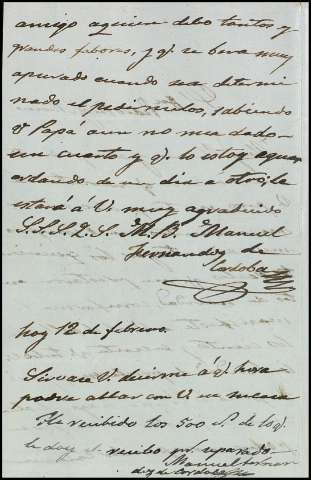 amigo aquien debo tantos y
grandes fabores, y q.e se bera muy
apurado cuando sea determi
nado el pedirmelos, sabiendo
q.e Papa aun no me a dado
un cuarto y q.e lo estoy aguar
ardando de un dia a otro, le
estará á V. muy agradecido
S.S.S.Q.S.M.B. Manuel
Fernandez de
Cordoba
hoy 12 de febrero.
Sirvase V. decirme á q.e hora
podre ablar con V. en su casa
He recibido los 500 r.s de los q.e
le doy el recibo por separado
Manuel Fernan
dez de Cordoba